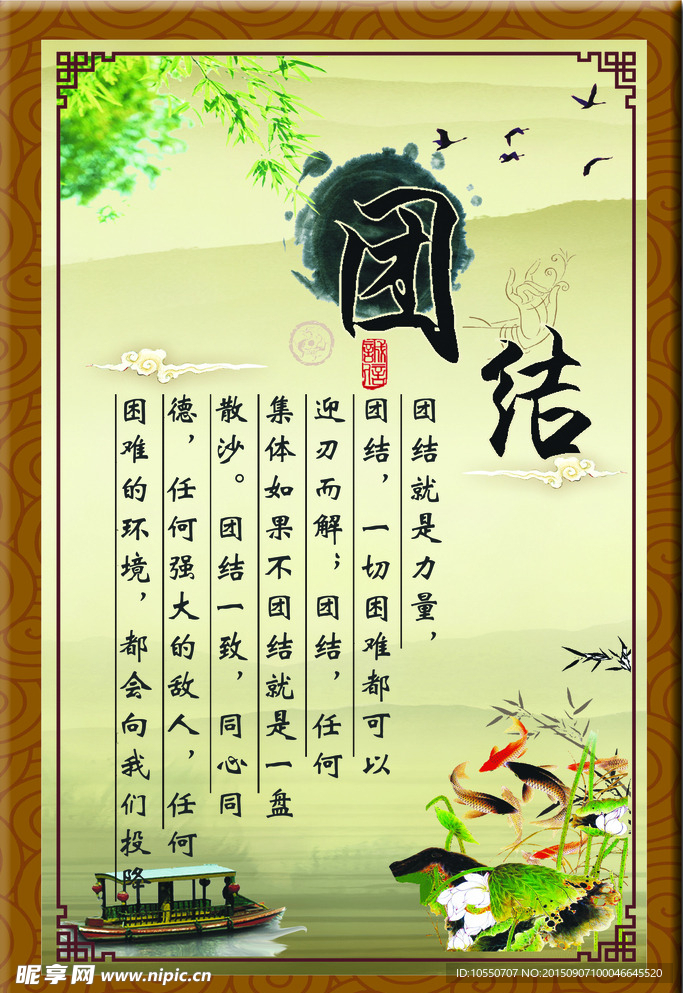 团结
誠信
团结就是力量，
团结，一切困难都可以
迎刃而解；团结，任何
集体如果不团结就是一盘
散沙。团结一致，同心同
德，任何强大的敌人，任何
困难的环境，都会向我们投降
昵享网 www.nipic.cn
ID:10550707 NO:20150907100046645520